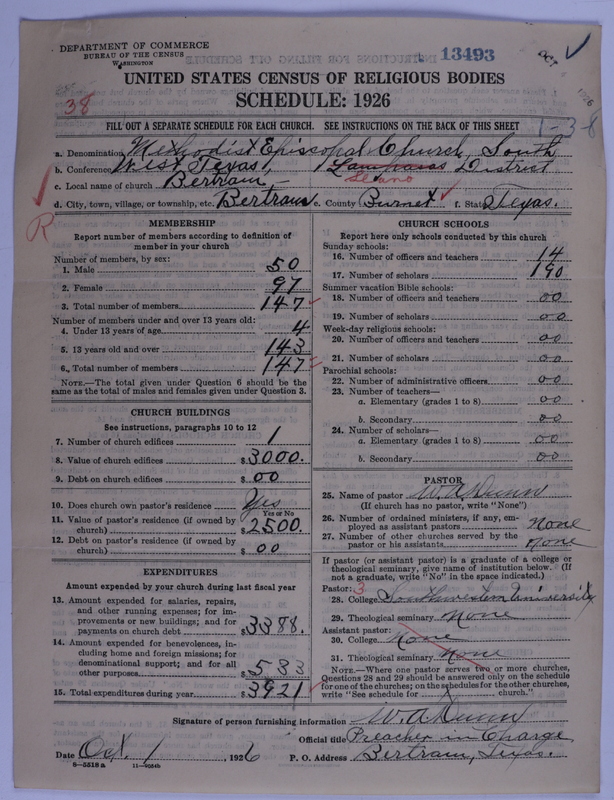 DEPARTMENT OF COMMERCE
BUREAU OF THE CENSUS
WASHINGTON
13493
OCT
1926
UNITED STATES CENSUS OF RELIGIOUS BODIES
38
SCHEDULE: 1926
FILL OUT A SEPARATE SCHEDULE FOR EACH CHURCH. SEE INSTRUCTIONS ON THE BACK OF THIS SHEET
1-3-8
a. Denomination Methodist Episcopal Church, South
b. Conference West Texas, Lampasas District
Llano
c. Local name of church Bertram
d. City, town, village, or township, etc. Bertram e. County Burnet f. State Texas.
R
MEMBERSHIP
Report number of members according to definition of
member in your church
Number of members, by sex:
1. Male 50
2. Female 97
3. Total number of members 147
Number of members under and over 13 years old:
4. Under 13 years of age 4
5. 13 years old and over 143
6. Total number of members 147
NOTE.—The total given under Question 6 should be the
same as the total of males and females given under Question 3.
CHURCH BUILDINGS
See instructions, paragraphs 10 to 12
7. Number of church edifices 1
8. Value of church edifices $ 3000.
9. Debt on church edifices $ 00
10. Does church own pastor's residence Yes
Yes or No
11. Value of pastor's residence (if owned by
church) $ 2500.
12. Debt on pastor's residence (if owned by
church) $ 00
EXPENDITURES
Amount expended by your church during last fiscal year
13. Amount expended for salaries, repairs,
and other running expenses; for im-
provements or new buildings; and for
payments on church debt $ 3388.
14. Amount expended for benevolences, in-
cluding home and foreign missions; for
denominational support; and for all
other purposes $ 533
15. Total expenditures during year $ 3921
CHURCH SCHOOLS
Report here only schools conducted by this church
Sunday schools:
16. Number of officers and teachers 14
17. Number of scholars 190
Summer vacation Bible schools:
18. Number of officers and teachers 00
19. Number of scholars 00
Week-day religious schools:
20. Number of officers and teachers 00
21. Number of scholars 00
Parochial schools:
22. Number of administrative officers 00
23. Number of teachers—
a. Elementary (grades 1 to 8) 00
b. Secondary 00
24. Number of scholars—
a. Elementary (grades 1 to 8) 00
b. Secondary 00
PASTOR
25. Name of pastor W. A. Dunn
(If church has no pastor, write "None")
26. Number of ordained ministers, if any, em-
ployed as assistant pastors none
27. Number of other churches served by the
pastor or his assistants none
If pastor (or assistant pastor) is a graduate of a college or
theological seminary, give name of institution below. (If
not a graduate, write "No" in the space indicated.)
Pastor: 3
28. College Southwestern University
29. Theological seminary None
Assistant pastor:
30. College None
31. Theological seminary None
NOTE.—Where one pastor serves two or more churches,
Questions 28 and 29 should be answered only on the schedule
for one of the churches; on the schedules for the other churches,
write "See schedule for church."
Signature of person furnishing information W. A. Dunn
Official title Preacher in Charge
Date Oct. 1, 1926 P. O. Address Bertram, Texas.
8-5518 a